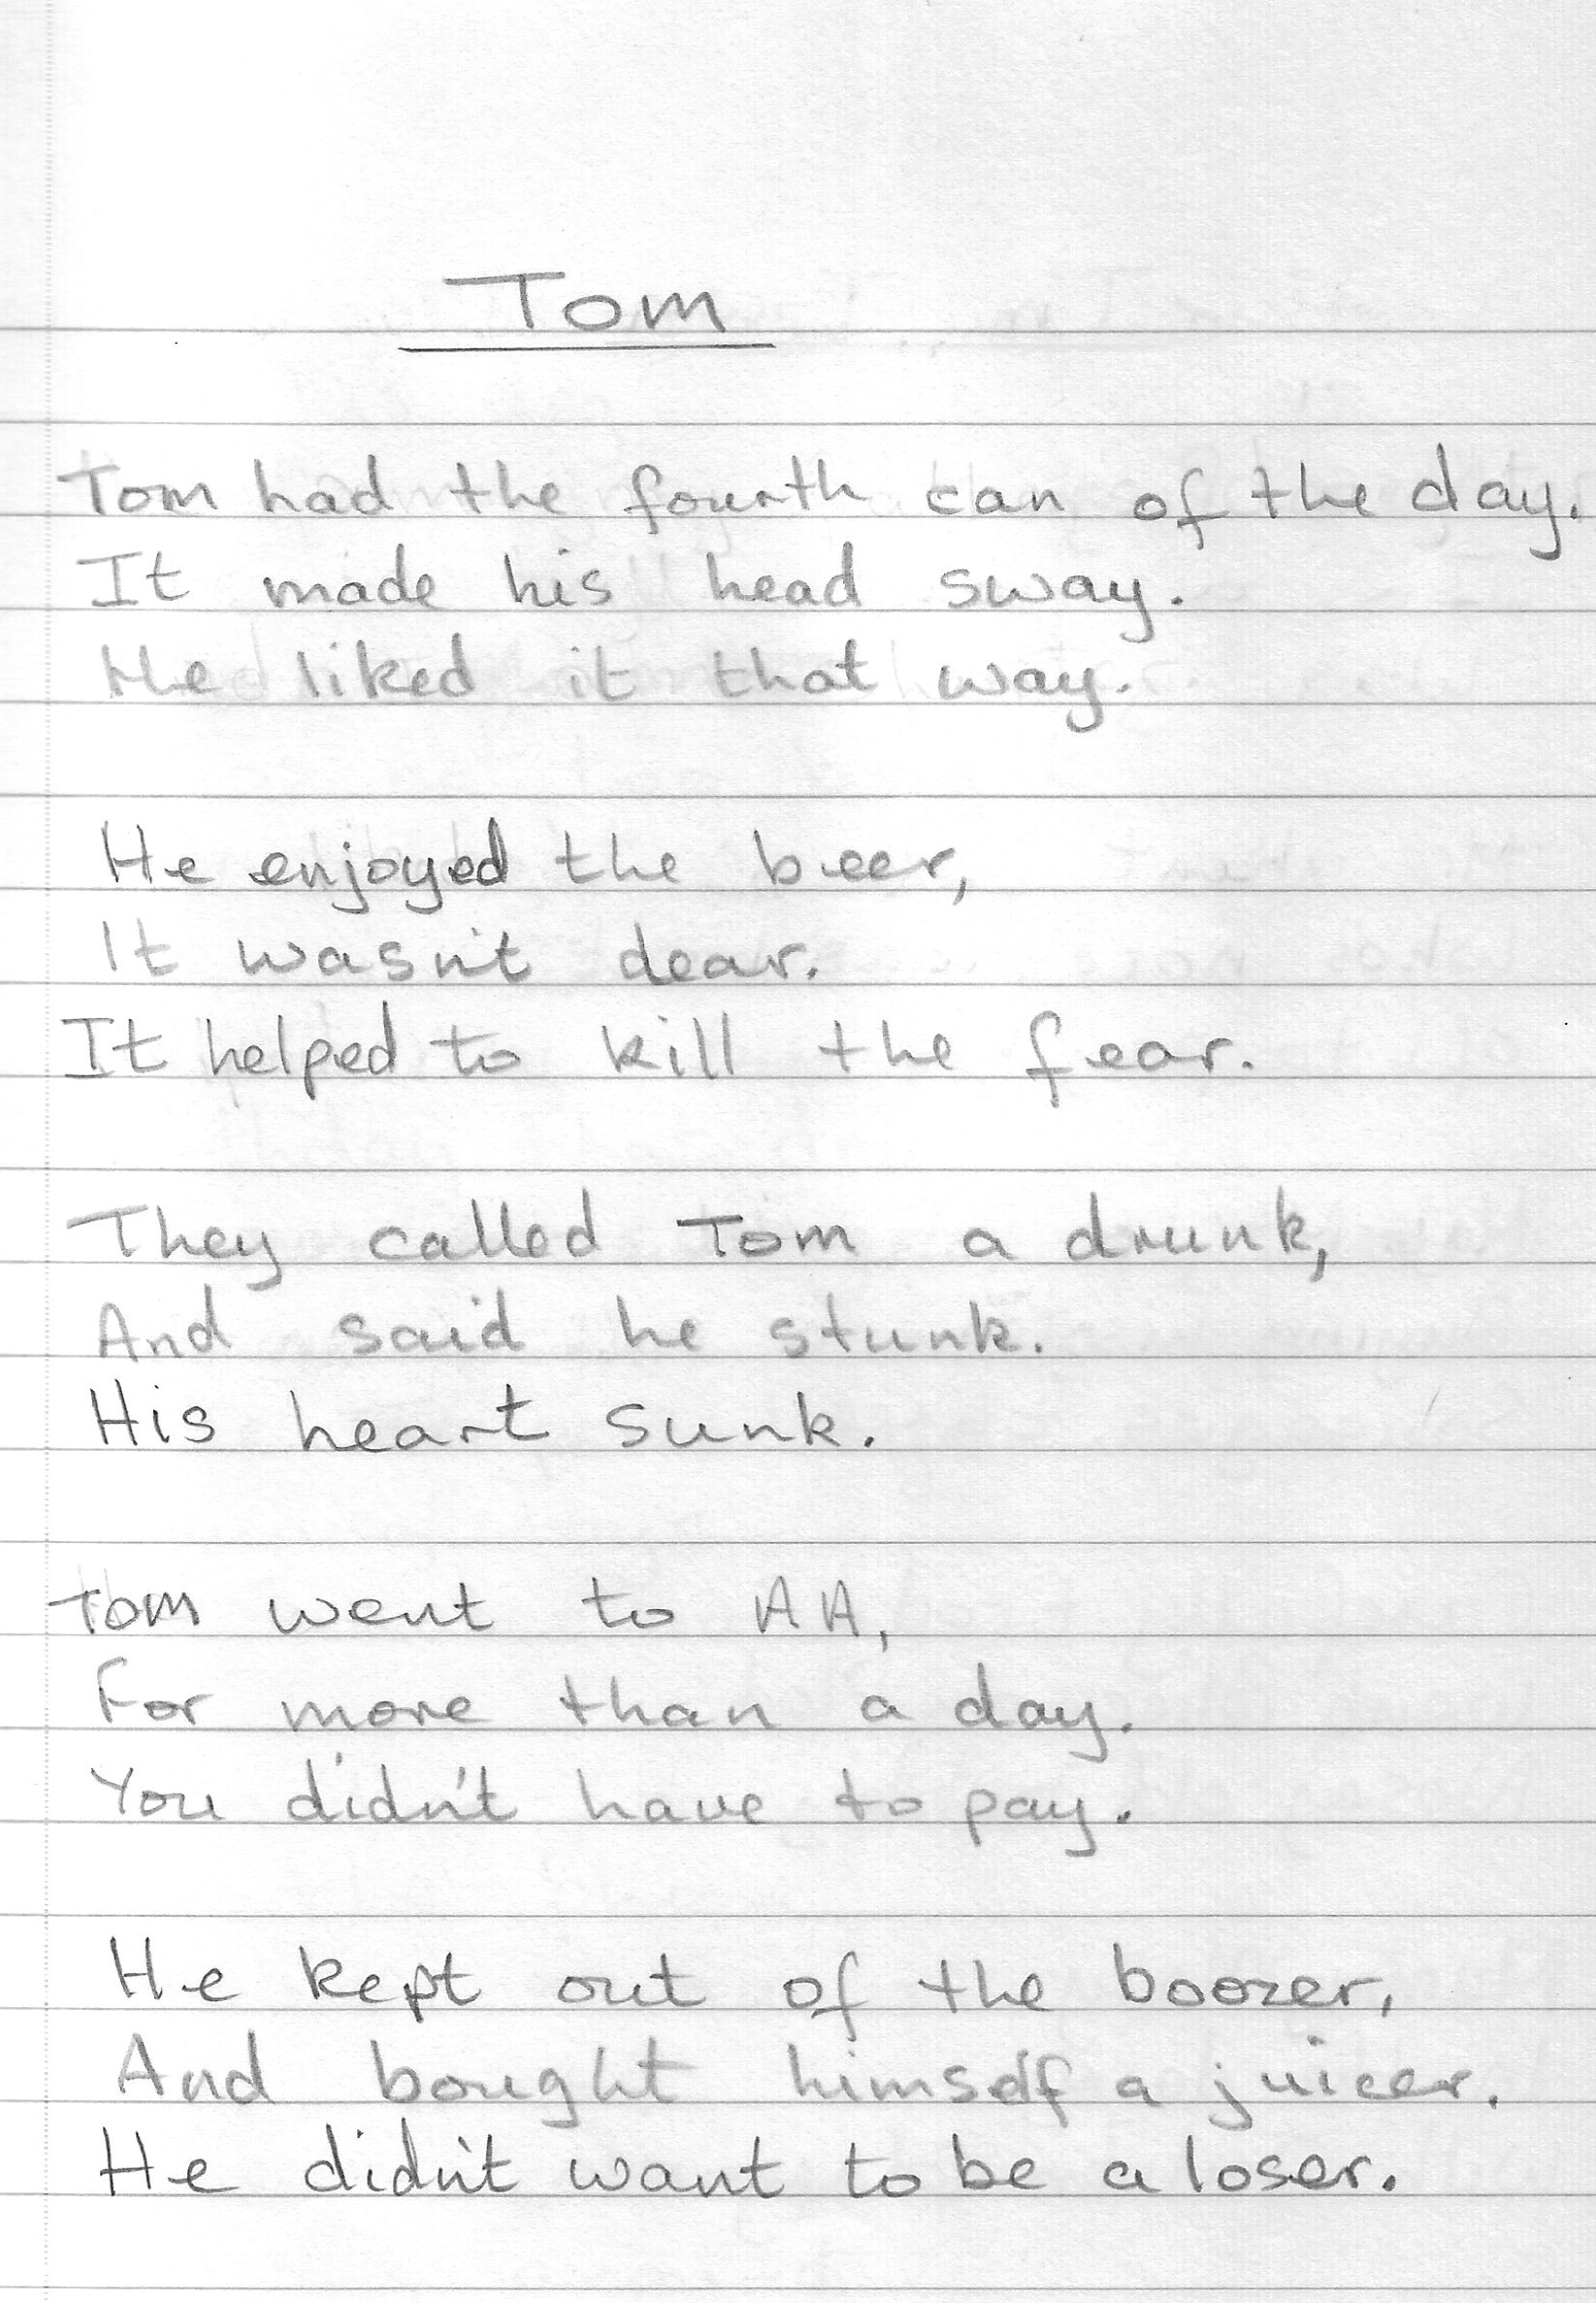 Tom
Tom had the fourth can of the day.
It made his head sway.
He liked it that way.
He enjoyed the beer,
It wasn't dear.
It helped to kill the fear.
They called Tom a drunk,
And said he stunk.
His heart sunk.
Tom went to AA,
For more than a day.
You didn't have to pay.
He kept out of the boozer,
And bought himself a juicer.
He didn't want to be a loser.